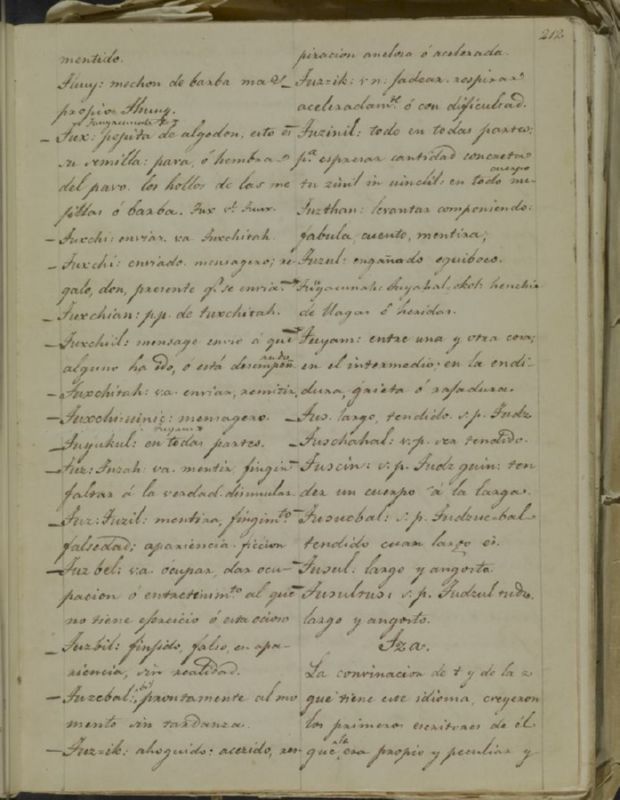 212
mentido.
Thuuy: mechon de barba
propio Thuuy.
Tuyacunah
– Tux: pepita de algodon, esto es
su semilla: pava, ó hembra
del pavo. los hollos de las me
jillas ó barba. Tux
– Tuxchi: enviar. va Tuxchitah.
– Tuxchí: enviado. mensagero; re
galo, don, presente q.e se envia.
– Tuxchian: pp. de tuxchitah.
– Tuxchiil: mensage envio á que
alguno ha ido, ó está
– Tuxchitah: va. enviar, remitir,
– Tuxchi-uinic: mensagero.
– Tuyukul: en todas partes.
– Tuz: Tuzah: va. mentir, fingir
faltar á la verdad. disimular
– Tuz: Tuzil: mentira, fingim.to
falsedad; apariencia. ficcion
– Tuz bel: va. ócupar, dar ocu-
pacion ó entretenim.to al que
no tiene ejercicio ó esta ocioso
– Tuzbil: finjido, falso, en apa-
riencia, sin realidad.
– Tuzebal: prontamente al mo
mento sin tardanza.
– Tuz=ik: ahoguido: acezido, res-
piracion anelosa ó acelerada.
– Tuz=ik: v.n: jadear. respirar
aceleradam.te ó con dificultad.
Tuzinil: todo en todas partes;
p.a espresar cantidad concreta
cuerpo
tu zinil in uincлil: en todo mi
Tuzthan: levantar componiendo:
fabula, cuento, mentira;
– Tuzul: engañado equiboco.
henchir
de llagas ó heridas.
– Tuyam: entre una y otra cosa;
en el intermedio; en la endi-
dura, grieta ó rajadura.
– Tus. largo, tendido. s.p. Tudz
– Tuschahal: v.p. ser tendido.
– Tuscin: v.p. Tudz quin: ten
der un cuerpo á la larga.
– Tusucbal: s.p. Tudzuc-bal
tendido cuan largo es.
– Tusul: largo y angosto.
– Tusulrus: s.p. Tudzul tudz.
largo y angosto.
Tza.
La convinacion de t y de la z
que tiene este idioma, creyeron
los primeros escritores de él
que era propio y peculiar y